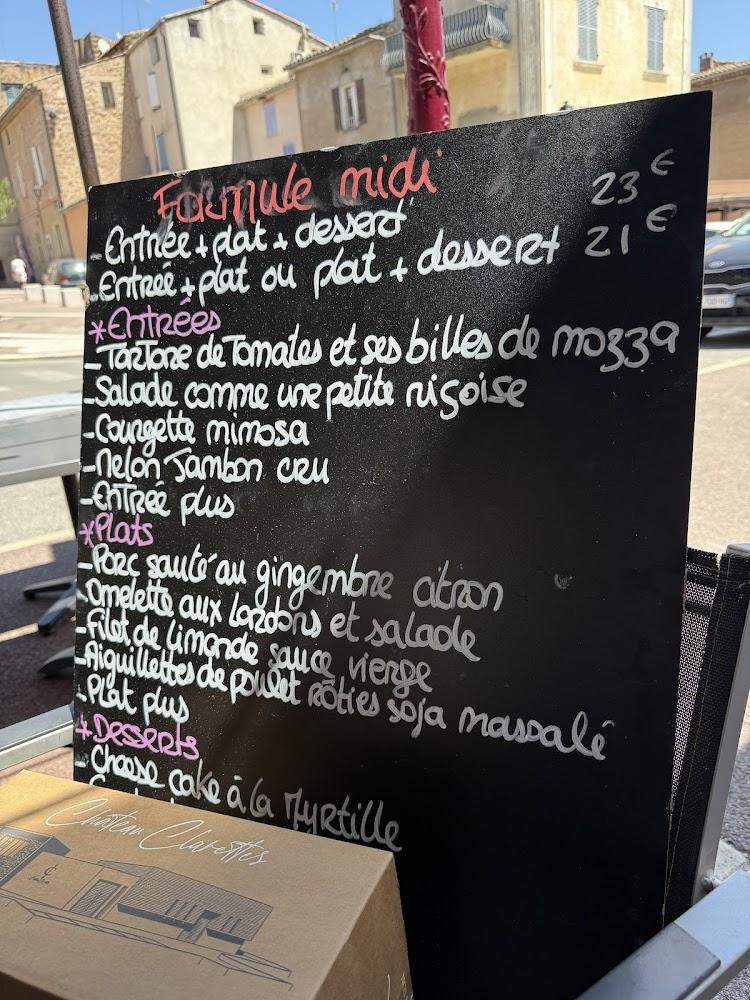 Formule midi
- Entrée + plat + dessert 23 €
- Entrée + plat ou plat + dessert 21 €
*Entrées
- Tartare de Tomates et ses billes de mozza
- Salade comme une petite niçoise
- Courgette mimosa
- Melon Jambon cru
- Entrée plus
*Plats
- Porc sauté au gingembre citron
- Omelette aux lardons et salade
- Filet de limande sauce vierge
- Aiguillettes de poulet rôties soja massalé
- Plat plus
*Desserts
- Cheese cake à la Myrtille
Château Clarettes